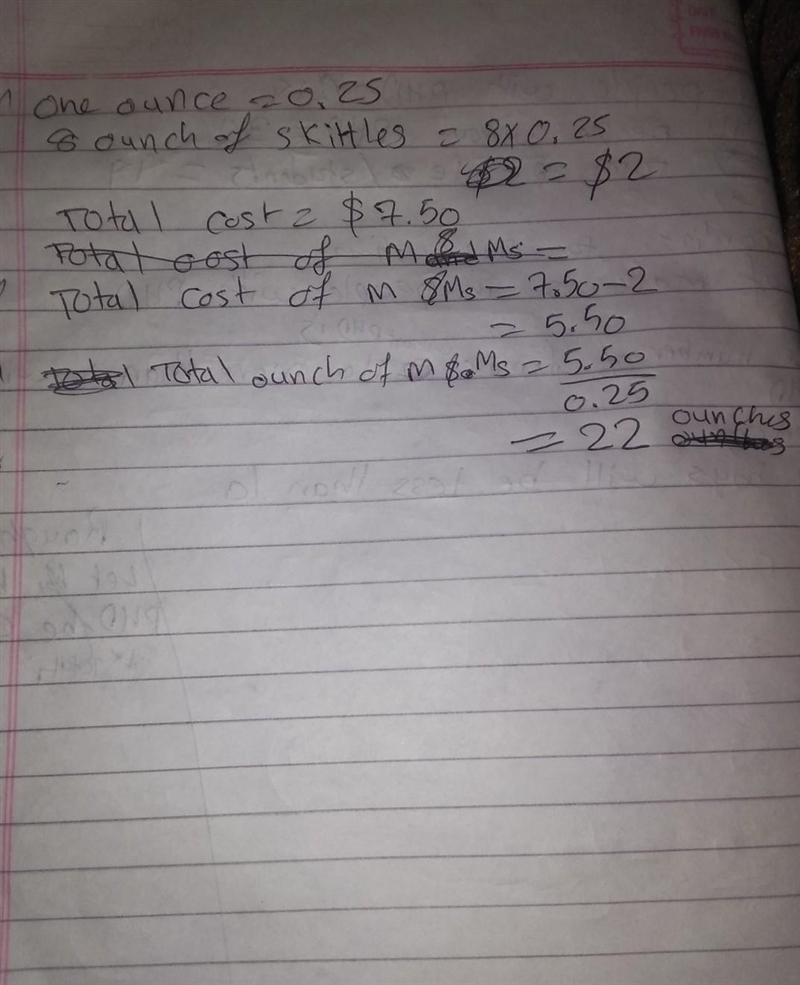 One ounce = 0.25
8 ounch of skittles = 8x0.25
= $2
Total cost = $7.50
Total cost of M & Ms =
Total cost of M &Ms = 7.50-2
= 5.50
Total ounch of M &.Ms = 5.50
0.25
= 22 ounches